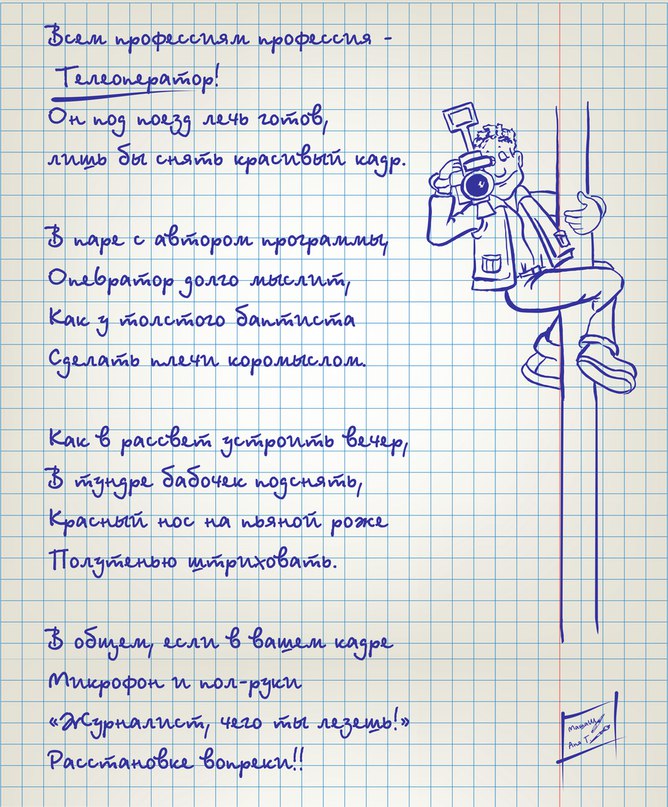 Всем профессиям профессия -
Телеоператор!
Он под поезд лечь готов,
лишь бы снять красивый кадр.
В паре с автором программы,
Опевратор долго мыслит,
Как у толстого баптиста
Сделать плечи коромыслом.
Как в рассвет устроить вечер,
В тундре бабочек подснять,
Красный нос на пьяной роже
Полутенью штриховать.
В общем, если в вашем кадре
Микрофон и пол-руки
«Журналист, чего ты лезешь!»
Расстановке вопреки!!